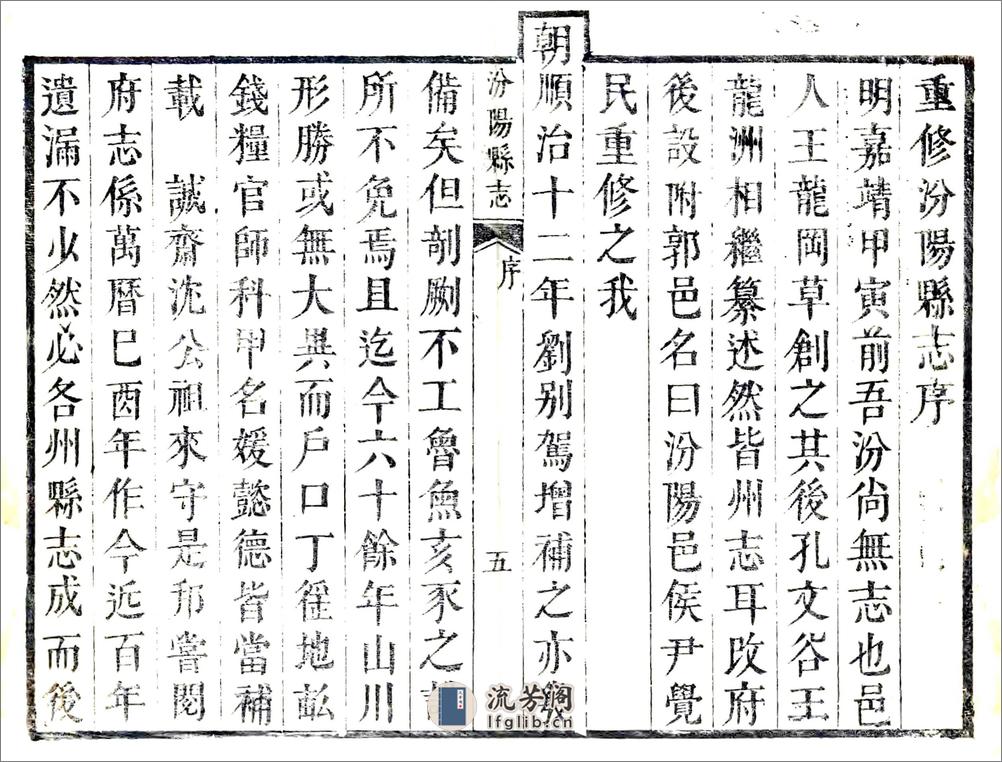 重修汾陽縣志序
明嘉靖甲寅前吾汾尚無志也邑
人王龍岡草創之其後孔文谷王
龍洲相繼纂述然皆州志耳改府
後設附郭邑名曰汾陽邑侯尹覺
民重修之我
朝順治十二年劉别駕增補之亦
汾陽縣志
序
五
備矣但剞劂不工魯魚亥豕之
所不免焉且迄今六十餘年山川
形勝或無大異而戶口丁徭地畝
錢糧官師科甲名媛懿德皆當補
載 誠齋沈公祖來守是邦嘗閱
府志係萬曆巳酉年作今近百年
遺漏不少然必各州縣志成而後
流芳阁
lfglib.cn